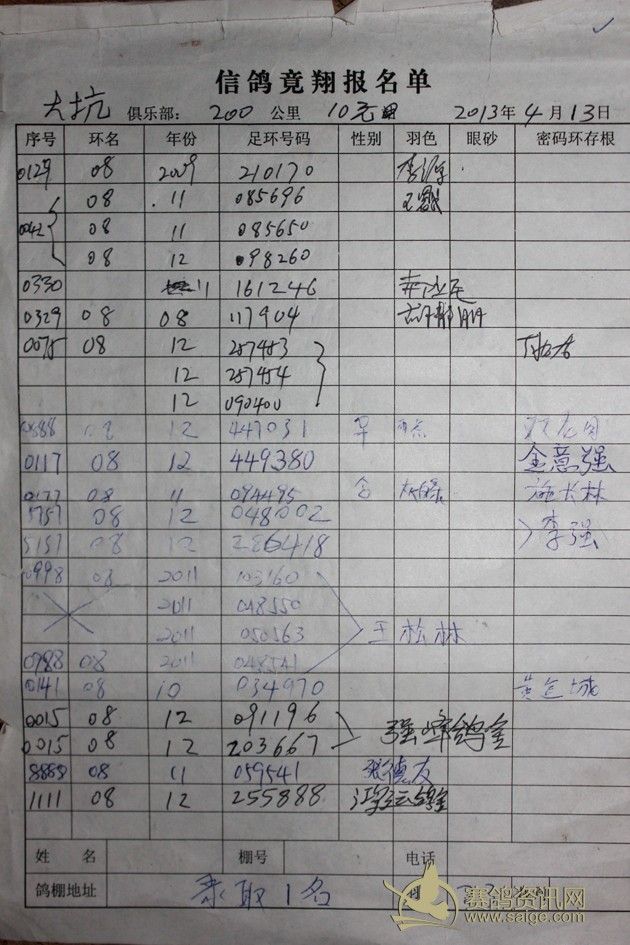 信鸽竟翔报名单
大坑 俱乐部: 200 公里 10元 2013年4月13日
序号 环名 年份 足环号码 性别 羽色 眼砂 密码环存根
0129 08 2009 210170
08 11 085696
0042 08 11 085650
08 12 098260
0330 11 161246
0329 08 08 117904
0075 08 12 257453
12 257454
12 090400
08 12 447031
0117 08 12 449380 金意强
0177 08 11 094495 施长林
08 12 048002
08 12 286418 李强
0998 08 2011 103160
2011 048550
2011 050563 王松林
0988 08 2011 048541
0141 08 10 034970
0015 08 12 091196
0015 08 12 203667 强峰鸽舍
8888 08 11 059541 张德友
1111 08 12 255888 鸿运鸽舍
姓名 棚号 电话
鸽棚地址 录取1名
赛鸽资讯网
www.saige.com